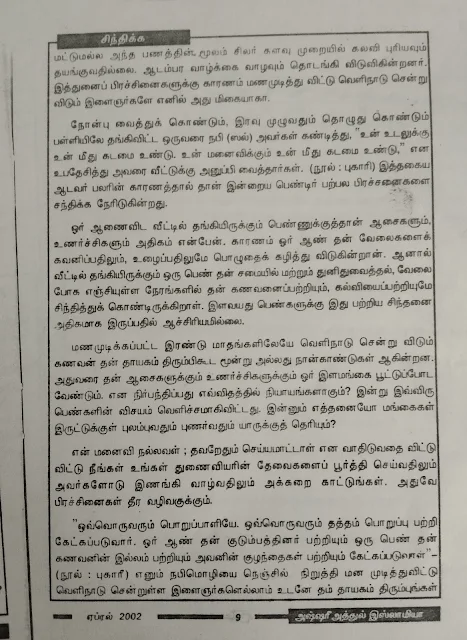 சிந்திக்க
மட்டுமல்ல அந்த பணத்தின் மூலம் சிலர் களவு முறையில் கலவி புரியவும்
தயங்குவதில்லை. ஆடம்பர வாழ்க்கை வாழவும் தொடங்கி விடுவிகின்றனர்.
இத்துனைப் பிரச்சினைகளுக்கு காரணம் மணமுடித்து விட்டு வெளிநாடு சென்று
விடும் இளைஞர்களே எனில் அது மிகையாகா.
நோன்பு வைத்துக் கொண்டும், இரவு முழுவதும் தொழுது கொண்டும்
பள்ளியிலே தங்கிவிட்ட ஒருவரை நபி (ஸல்) அவர்கள் கண்டித்து, "உன் உடலுக்கு
உன் மீது கடமை உண்டு. உன் மனைவிக்கும் உன் மீது கடமை உண்டு," என
உபதேசித்து அவரை வீட்டுக்கு அனுப்பி வைத்தார்கள். (நூல் : புகாரி) இத்தகைய
ஆடவர் பலரின் காரணத்தால் தான் இன்றைய பெண்டிர் பற்பல பிரச்சனைகளை
சந்திக்க நேரிடுகின்றது.
ஓர் ஆணைவிட வீட்டில் தங்கியிருக்கும் பெண்ணுக்குத்தான் ஆசைகளும்,
உணர்ச்சிகளும் அதிகம் என்பேன். காரணம் ஓர் ஆண் தன் வேலைகளைக்
கவனிப்பதிலும், உழைப்பதிலுமே பொழுதைக் கழித்து விடுகின்றான். ஆனால்
வீட்டில் தங்கியிருக்கும் ஒரு பெண் தன் சமையில் மற்றும் துனிதுவைத்தல், வேலை
போக எஞ்சியுள்ள நேரங்களில் தன் கணவனைப்பற்றியும், கல்வியைப்பற்றியுமே
சிந்தித்துக் கொண்டிருக்கிறாள். இளவயது பெண்களுக்கு இது பற்றிய சிந்தனை
அதிகமாக இருப்பதில் ஆச்சிரியமில்லை.
மணமுடிக்கப்பட்ட இரண்டு மாதங்களிலேயே வெளிநாடு சென்று விடும்
கணவன் தன் தாயகம் திரும்பிகூட மூன்று அல்லது நான்காண்டுகள் ஆகின்றன.
அதுவரை தன் ஆசைகளுக்கும் உணர்ச்சிகளுக்கும் ஓர் இளமங்கை பூட்டுப்போட
வேண்டும். என நிர்பந்திப்பது எவ்விதத்தில் நியாயங்களாகும்? இன்று இவ்விரு
பெண்களின் விசயம் வெளிச்சமாகிவிட்டது. இன்னும் எத்தனையோ மங்கைகள்
இருட்டுக்குள் புலம்புவதும் புணர்வதும் யாருக்குத் தெரியும்?
என் மனைவி நல்லவள் ; தவறேதும் செய்யமாட்டாள் என வாதிடுவதை விட்டு
விட்டு நீங்கள் உங்கள் துணைவியரின் தேவைகளைப் பூர்த்தி செய்வதிலும்
அவர்களோடு இணங்கி வாழ்வதிலும் அக்கறை காட்டுங்கள். அதுவே
பிரச்சினைகள் தீர வழிவகுக்கும்.
"ஒவ்வொருவரும் பொறுப்பாளியே. ஒவ்வொருவரும் தத்தம் பொறுப்பு பற்றி
கேட்கப்படுவார். ஓர் ஆண் தன் குடும்பத்தினர் பற்றியும் ஒரு பெண் தன்
கணவனின் இல்லம் பற்றியும் அவனின் குழந்தைகள் பற்றியும் கேட்கப்படுவாள்"–
(நூல் : புகாரி) எனும் நபிமொழியை நெஞ்சில் நிறுத்தி மண முடித்துவிட்டு
வெளிநாடு சென்றுள்ள இளைஞர்களெல்லாம் உடனே தம் தாயகம் திரும்புங்கள்
ஏப்ரல் 2002
9
அஷ்ஷரீஅத்துல் இஸ்லாமியா